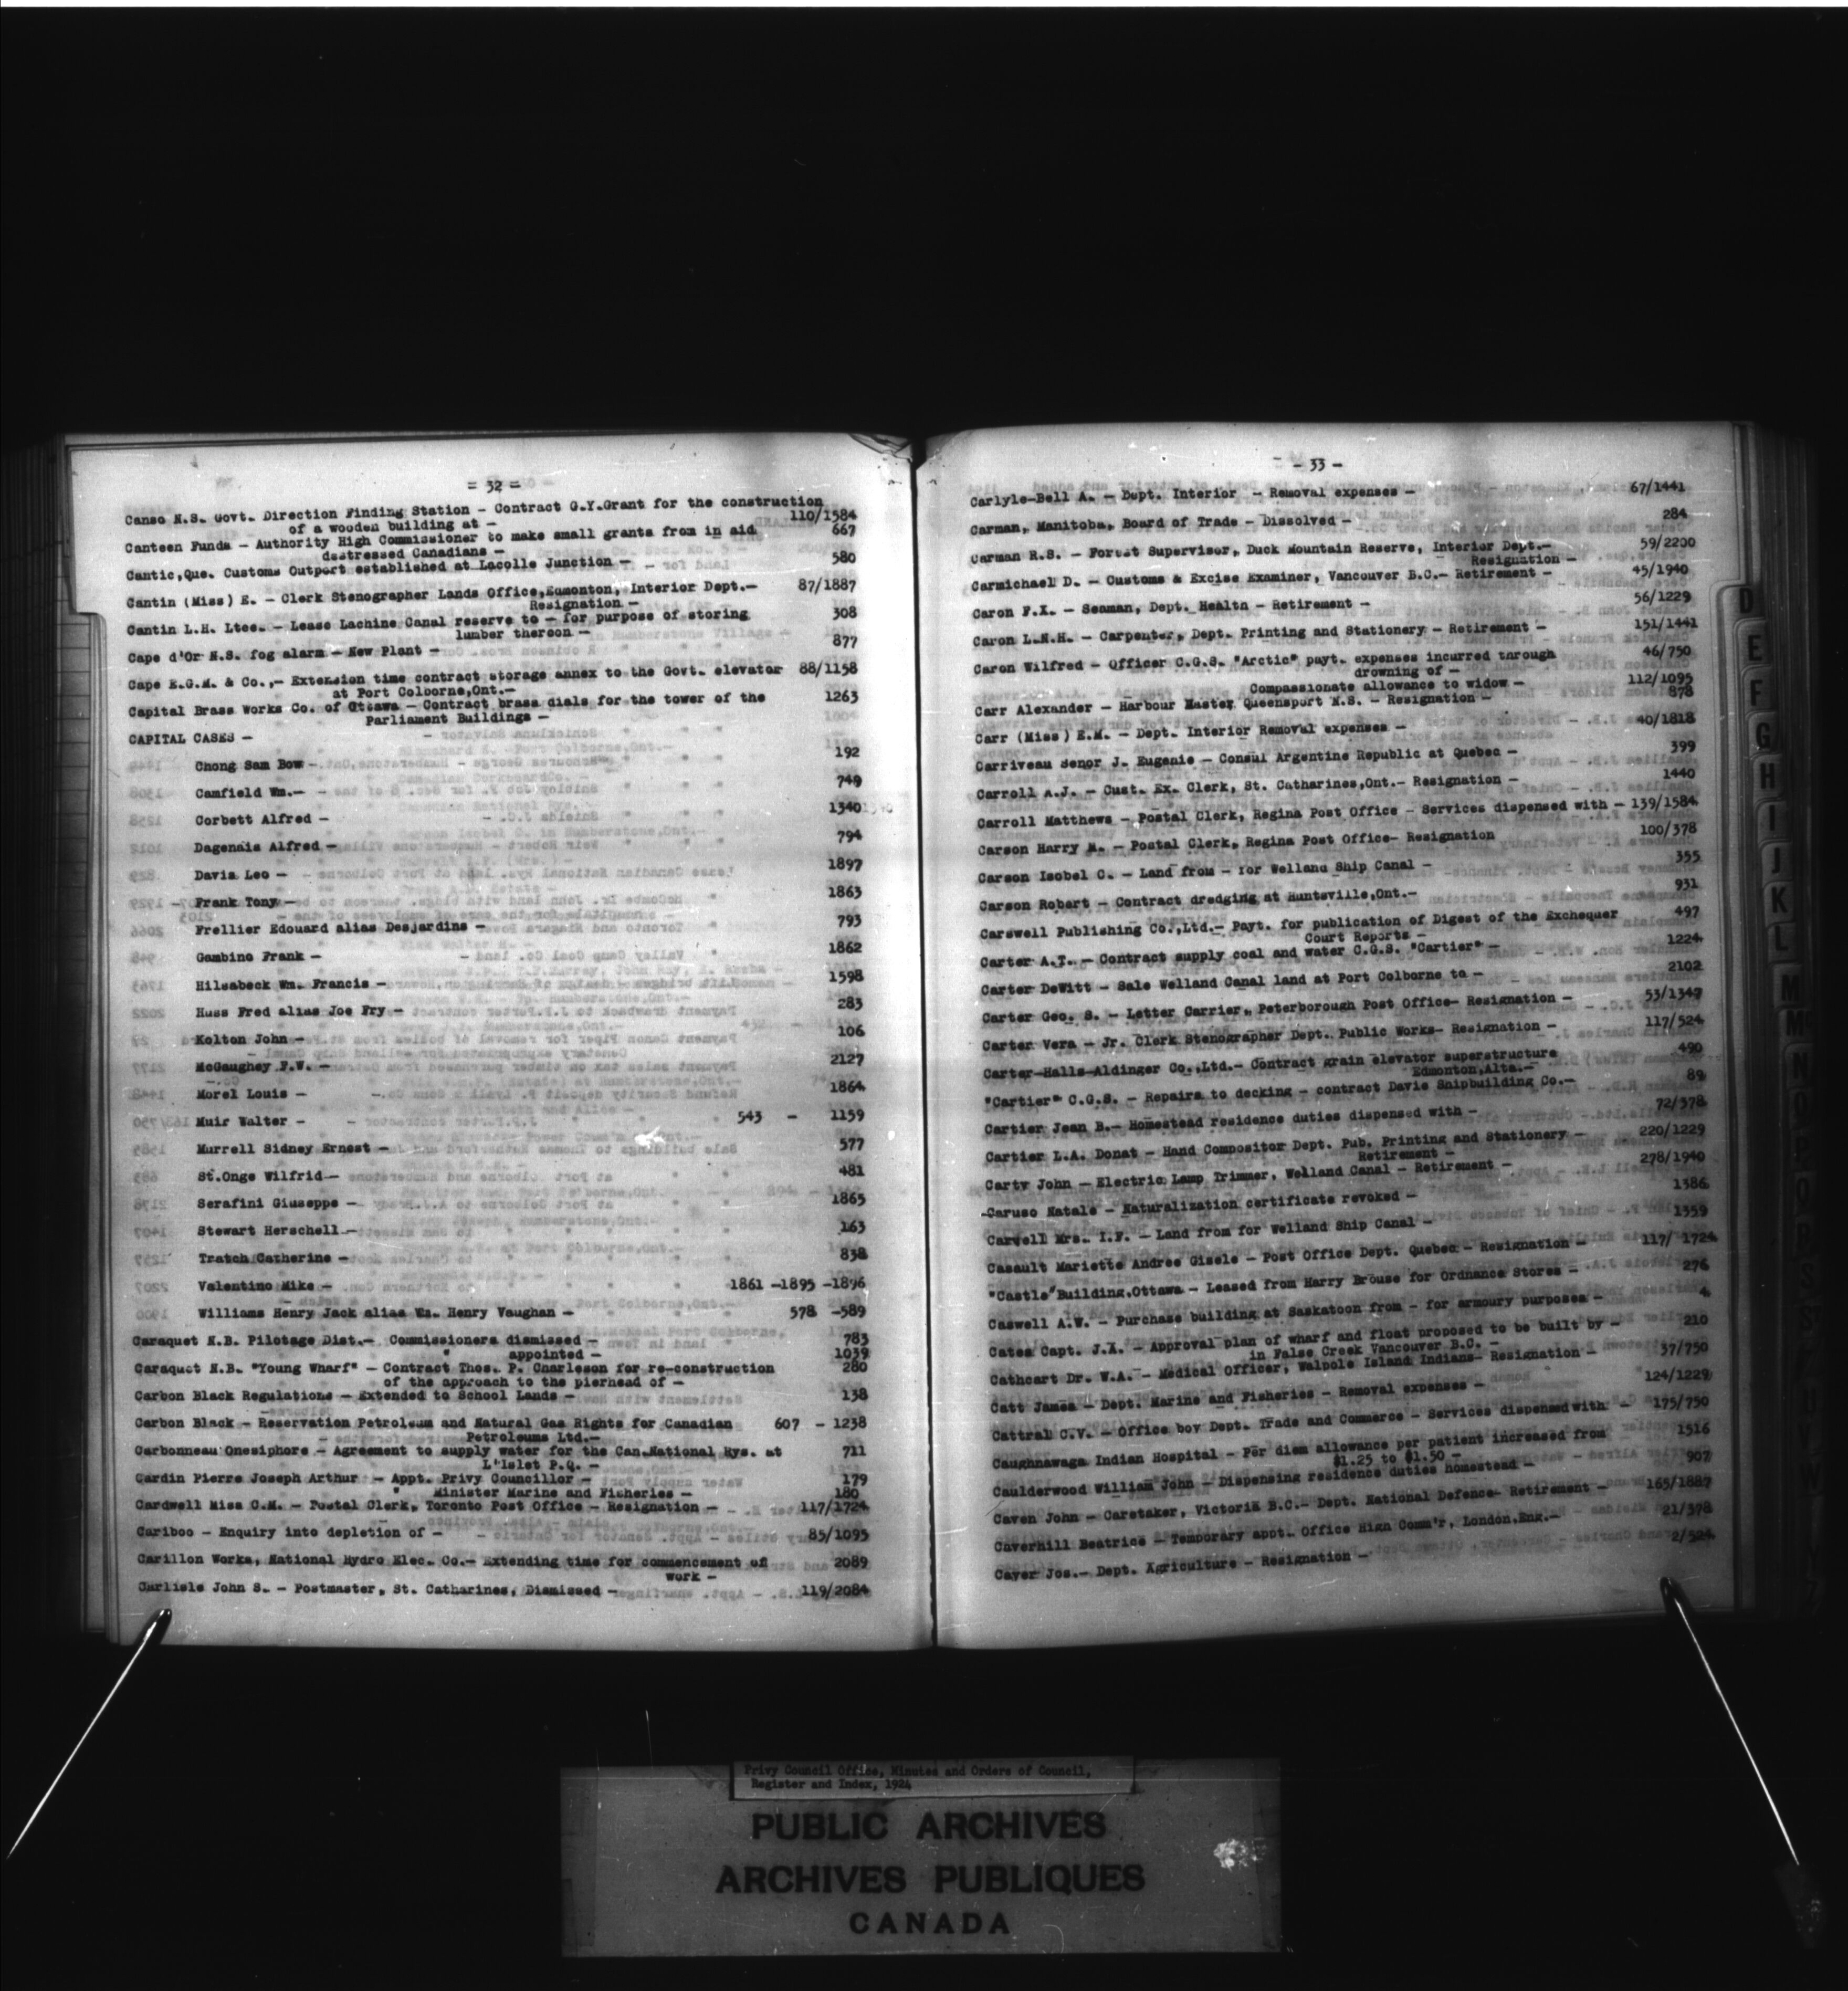 = 32 =
Canso N.S. Govt. Direction Finding Station - Contract G.Y.Grant for the construction
of a wooden building at - 110/1584
Canteen Funds - Authority High Commissioner to make small grants from in aid 667
destressed Canadians -
Cantic,Que. Customs Outport established at Lacolle Junction - 580
Cantin (Miss) E. - Clerk Stenographer Lands Office,Edmonton, Interior Dept.- 87/1887
Resignation -
Cantin L.H. Ltee. - Lease Lachine Canal reserve to - for purpose of storing 308
lumber thereon -
Cape d'Or N.S. fog alarm - New Plant - 877
Cape E.G.M. & Co.,- Extension time contract storage annex to the Govt. elevator 88/1158
at Port Colborne,Ont.-
Capital Brass Works Co. of Ottawa - Contract brass dials for the tower of the 1263
Parliament Buildings -
CAPITAL CASES -
Chong Sam Bow - 192
Camfield Wm.- 749
Corbett Alfred - 1340
Dagenais Alfred - 794
Davis Leo - 1897
Frank Tony - 1863
Frellier Edouard alias Desjardins - 793
Gambino Frank - 1862
Hilsabeck Wm. Francis - 1598
Huss Fred alias Joe Fry - 283
Kolton John - 106
McGaughey F.W. - 2127
Morel Louis - 1864
Muir Walter - 543 - 1159
Murrell Sidney Ernest - 577
St.Onge Wilfrid - 481
Serafini Giuseppe - 1865
Stewart Herschell - 163
Tratch Catherine - 838
Valentino Mike - 1861 -1895 -1896
Williams Henry Jack alias Wm. Henry Vaughan - 578 -589
Caraquet N.B. Pilotage Dist.- Commissioners dismissed - 783
" appointed - 1039
Caraquet N.B. "Young Wharf" - Contract Thos. P. Charleson for re-construction 280
of the approach to the pierhead of -
Carbon Black Regulations - Extended to School Lands - 138
Carbon Black - Reservation Petroleum and Natural Gas Rights for Canadian 607 - 1238
Petroleums Ltd.-
Carbonneau Onesiphore - Agreement to supply water for the Can.National Rys. at 711
L'Islet P.Q. -
Cardin Pierre Joseph Arthur - Appt. Privy Councillor - 179
" Minister Marine and Fisheries - 180
Cardwell Miss C.M. - Postal Clerk, Toronto Post Office - Resignation - 117/1724
Cariboo - Enquiry into depletion of - 85/1095
Carillon Works, National Hydro Elec. Co.- Extending time for commencement of 2089
work -
Carlisle John S. - Postmaster, St. Catharines, Dismissed - 119/2084
- 33 -
Carlyle-Bell A. - Dept. Interior - Removal expenses - 67/1441
Carman, Manitoba, Board of Trade - Dissolved - 284
Carman R.S. - Forest Supervisor, Duck Mountain Reserve, Interior Dept.- 59/2200
Resignation -
Carmichael D. - Customs & Excise Examiner, Vancouver B.C.- Retirement - 45/1940
Caron F.X. - Seaman, Dept. Health - Retirement - 56/1229
Caron L.N.H. - Carpenter, Dept. Printing and Stationery - Retirement - 151/1441
Caron Wilfred - Officer C.G.S. "Arctic" payt. expenses incurred through 46/750
drowning of -
Compassionate allowance to widow - 112/1095
Carr Alexander - Harbour Master Queensport N.S. - Resignation - 878
Carr (Miss) E.M. - Dept. Interior Removal expenses - 40/1818
Carriveau Senor J. Eugenie - Consul Argentine Republic at Quebec - 399
Carroll A.J. - Cust. Ex. Clerk, St. Catharines,Ont.- Resignation - 1440
Carroll Matthews - Postal Clerk, Regina Post Office - Services dispensed with - 139/1584
Carson Harry M. - Postal Clerk, Regina Post Office- Resignation 100/378
Carson Isobel C. - Land from - for Welland Ship Canal - 355
Carson Robert - Contract dredging at Huntsville,Ont.- 931
Carswell Publishing Co.,Ltd.- Payt. for publication of Digest of the Exchequer 497
Court Reports -
Carter A.T. - Contract supply coal and water C.G.S. "Cartier" - 1224
Carter DeWitt - Sale Welland Canal land at Port Colborne to - 2102
Carter Geo. S. - Letter Carrier, Peterborough Post Office- Resignation - 53/1347
Carter Vera - Jr. Clerk Stenographer Dept. Public Works- Resignation - 117/524
Carter-Halls-Aldinger Co.,Ltd.- Contract grain elevator superstructure 490
Edmonton,Alta.-
"Cartier" C.G.S. - Repairs to decking - contract Davie Shipbuilding Co.- 89
Cartier Jean B.- Homestead residence duties dispensed with - 72/378
Cartier L.A. Donat - Hand Compositor Dept. Pub. Printing and Stationery - 220/1229
Retirement -
Carty John - Electric Lamp Trimmer, Welland Canal - Retirement - 278/1940
Caruso Natale - Naturalization certificate revoked - 1386
Carvell Mrs. I.F. - Land from for Welland Ship Canal - 1359
Casault Mariette Andree Gisele - Post Office Dept. Quebec - Resignation - 117/ 1724
"Castle" Building,Ottawa - Leased from Harry Brouse for Ordnance Stores - 276
Caswell A.W. - Purchase building at Saskatoon from - for armoury purposes - 4
Cates Capt. J.X. - Approval plan of wharf and float proposed to be built by - 210
in False Creek Vancouver B.C. -
Cathcart Dr. W.A. - Medical Officer, Walpole Island Indians- Resignation - 37/750
Catt James - Dept. Marine and Fisheries - Removal expenses - 124/1229
Cattral C.V. - Office boy Dept. Trade and Commerce - Services dispensed with - 175/750
Caughnawaga Indian Hospital - Per diem allowance per patient increased from 1516
$1.25 to $1.50 -
Caulderwood William John - Dispensing residence duties homestead - 907
Caven John - Caretaker, Victoria B.C.- Dept. National Defence- Retirement - 165/1887
Caverhill Beatrice - Temporary appt. Office High Comm'r, London.Eng.- 21/378
Cayer Jos.- Dept. Agriculture - Resignation - 2/524
D
E
F
G
H
I
J
K
L
M
Privy Council Office, Minutes and Orders of Council,
Register and Index, 1924
PUBLIC ARCHIVES
ARCHIVES PUBLIQUES
CANADA